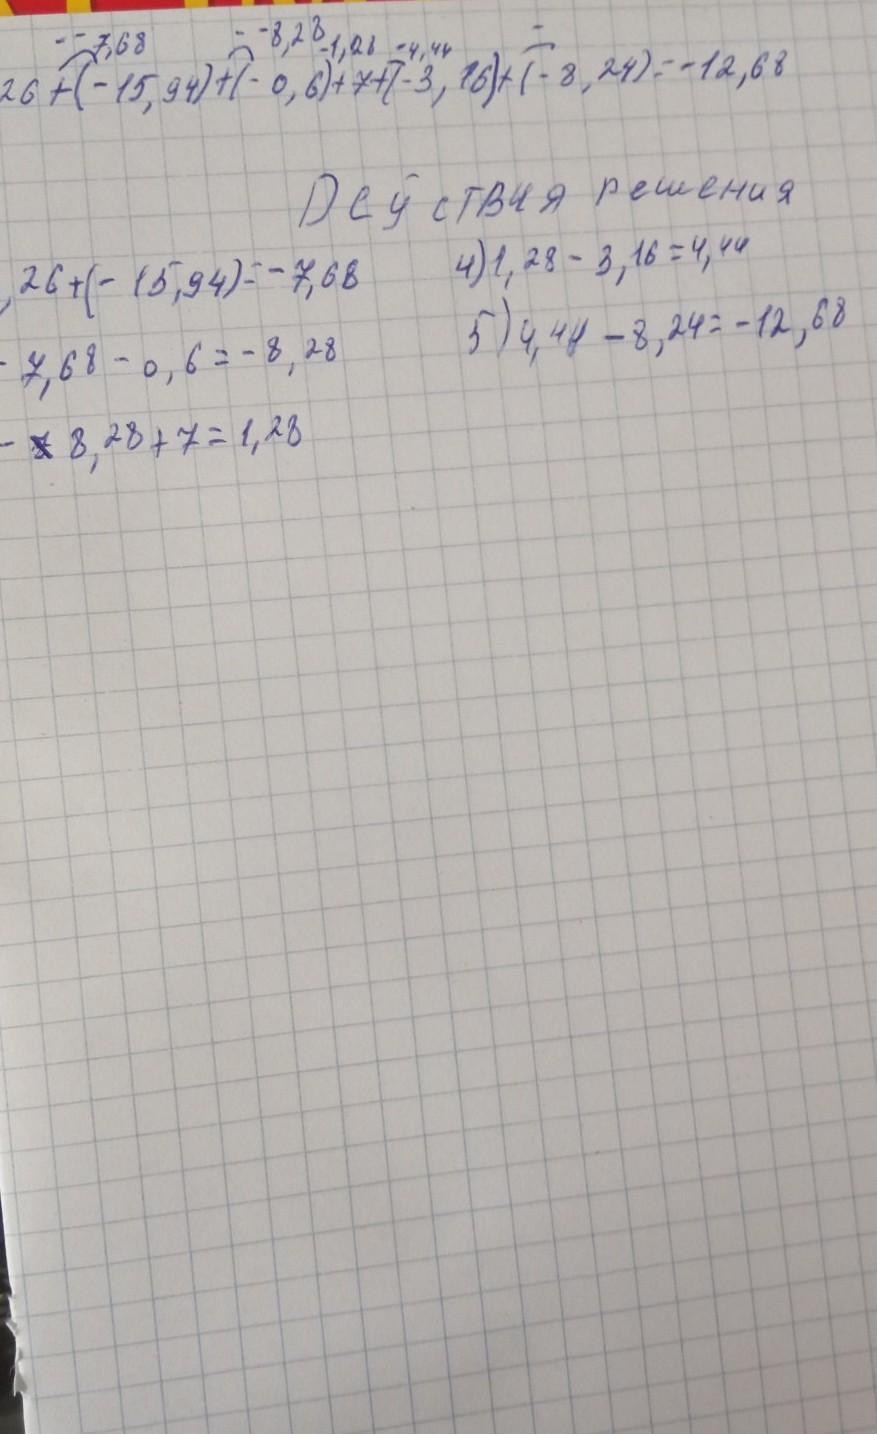 - -7,68 - -8,28 -1,28 -4,44 -
26+(-15,94)+(-0,6)+7+(-3,16)+(-8,24)=-12,68
Действия решения
,26+(-15,94)=-7,68
4)1,28-3,16=4,44
-7,68-0,6=-8,28
5)4,44-8,24=-12,68
-8,28+7=1,28